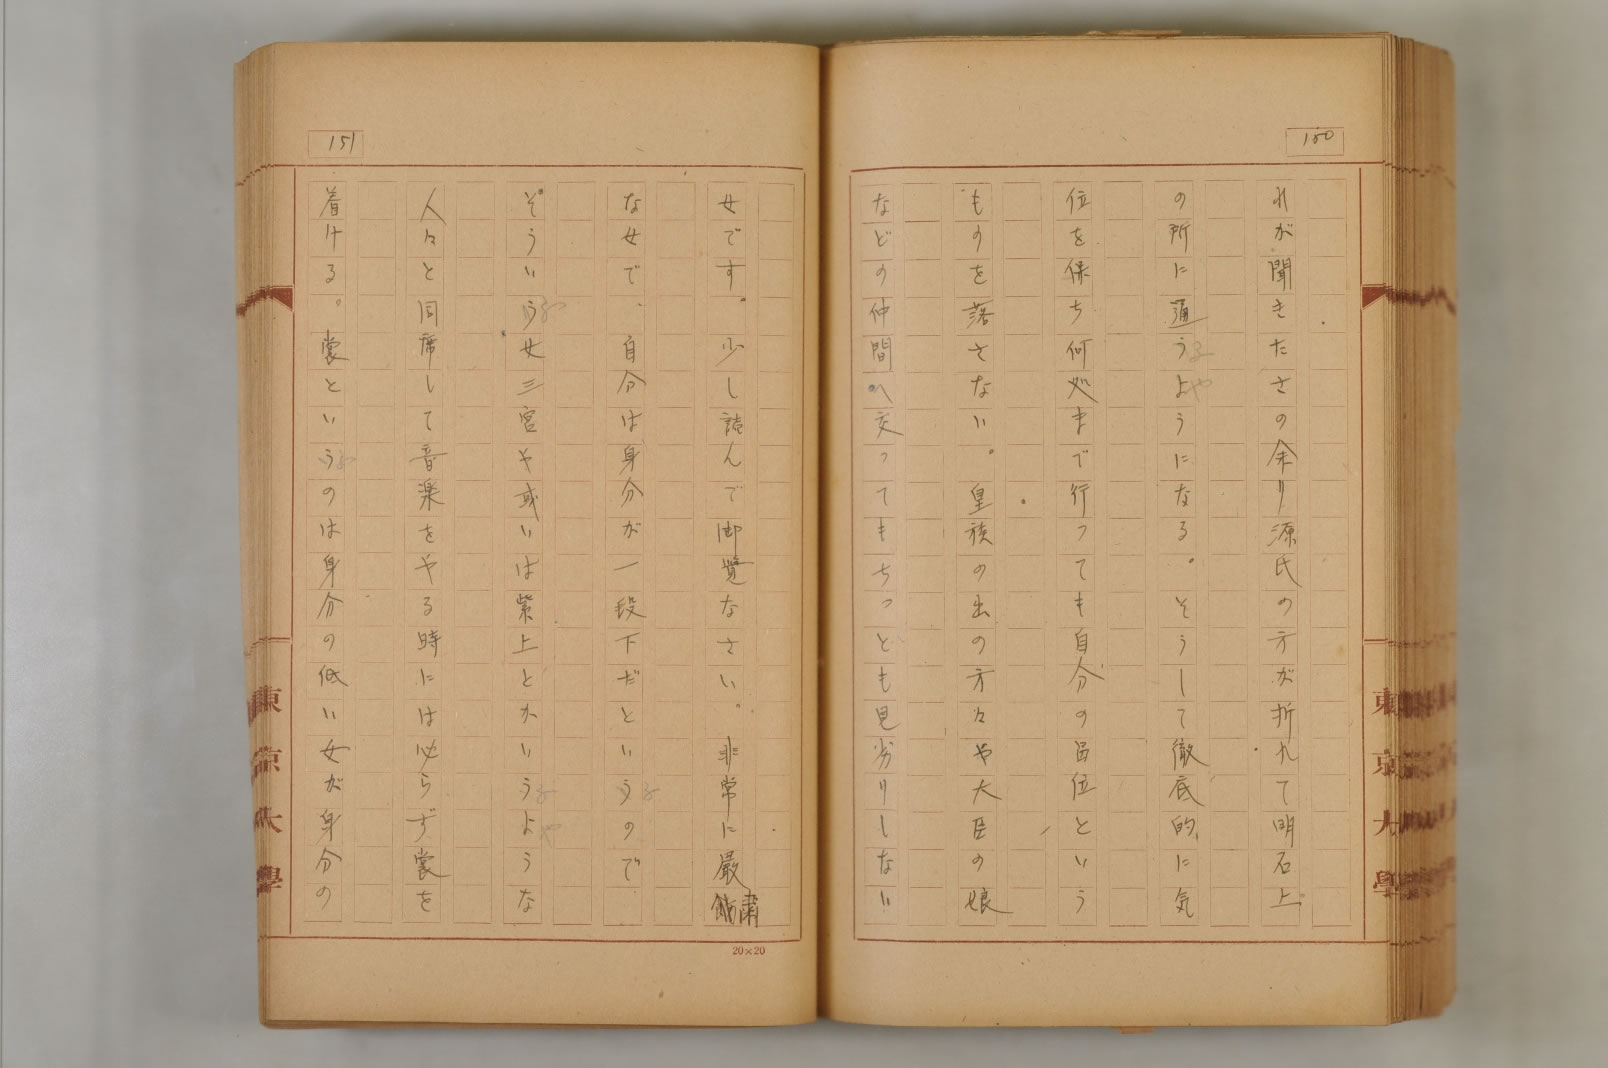 150
れが聞きたさの余り源氏の方が折れて明石上
の所に通うようになる。そうして徹底的に気
位を保ち何処まで行っても自分の品位という
ものを落さない。皇族の出の方々や大臣の娘
などの仲間へ交ってもちっとも見劣りしない
東京大學
151
女です。少し読んで御覧なさい。非常に厳粛
な女で、自分は身分が一段下だというので
そういう女三宮や或いは紫上とかいうような
人々と同席して音楽をやる時には必らず裳を
着ける。裳というのは身分の低い女が身分の
20×20
東京大學